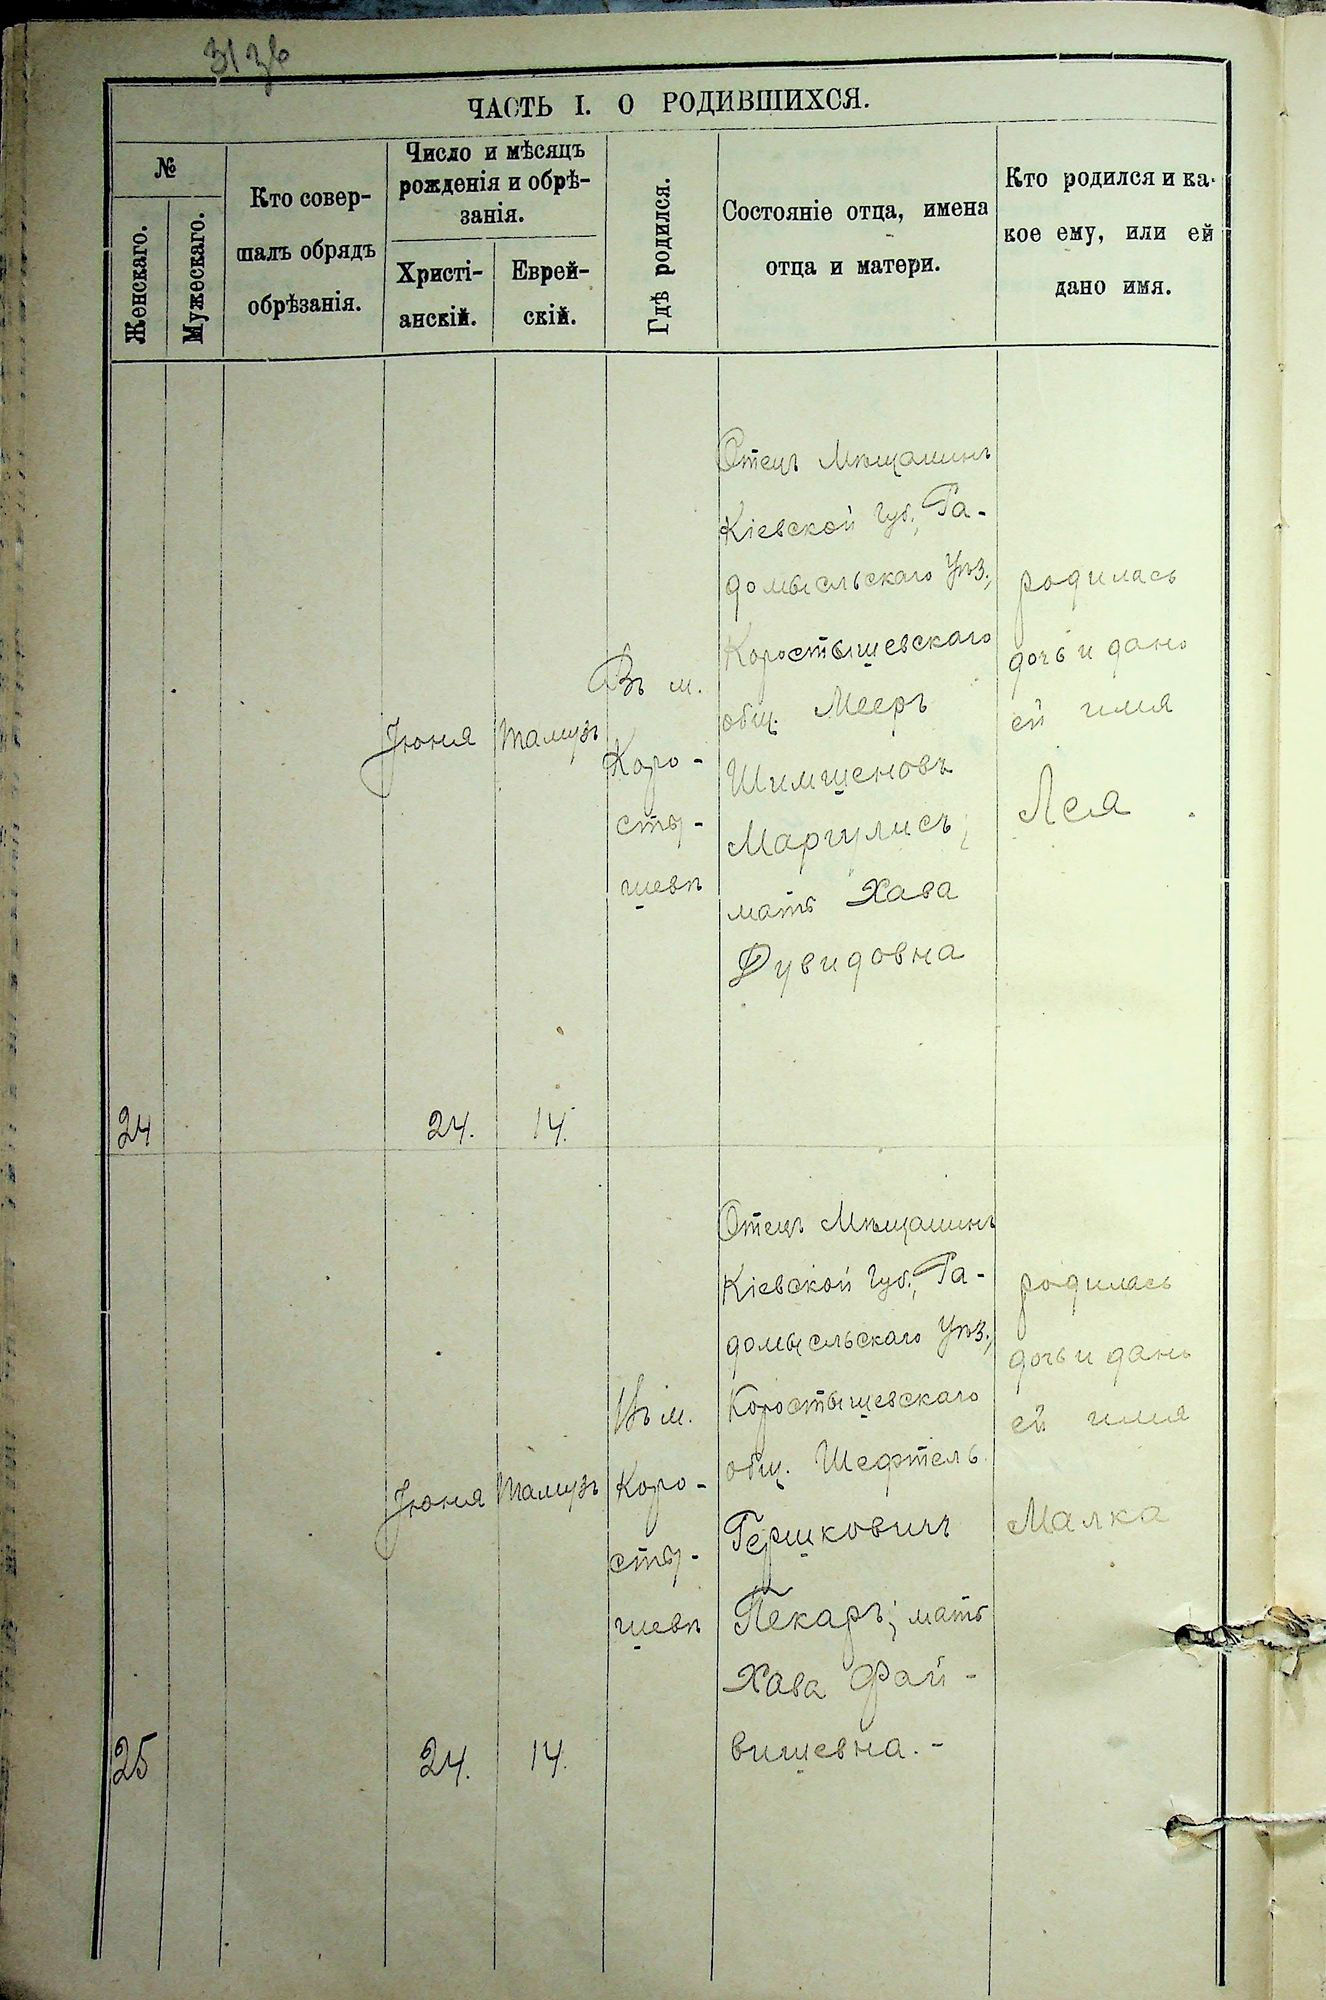 ЧАСТЬ I. О РОДИВШИХСЯ.
№
Женскаго.
Мужескаго.
Кто совер-
шалъ обрядъ
обрѣзанія.
Число и мѣсяцъ
рожденія и обрѣ-
занія.
Христі-
анскій.
Еврей-
скій.
Гдѣ родился.
Состояніе отца, имена
отца и матери.
Кто родился и ка-
кое ему, или ей
дано имя.
24
Іюня
24.
Тамузъ
14.
Въ м.
Коро-
сты-
шевѣ
Отецъ Мѣщанинъ
Кіевской губ., Ра-
домысльскаго Уѣз.,
Коростышевскаго
общ. Мееръ
Шимшеновъ
Маргулисъ;
мать Хава
Дувидовна
родилась
дочь и дано
ей имя
Лея
25
Іюня
24.
Тамузъ
14.
Въ м.
Коро-
сты-
шевѣ
Отецъ Мѣщанинъ
Кіевской губ., Ра-
домысльскаго Уѣз.,
Коростышевскаго
общ. Шефтель
Гершковичъ
Пекаръ; мать
Хава Фай-
вишевна. -
родилась
дочь и дано
ей имя
Малка